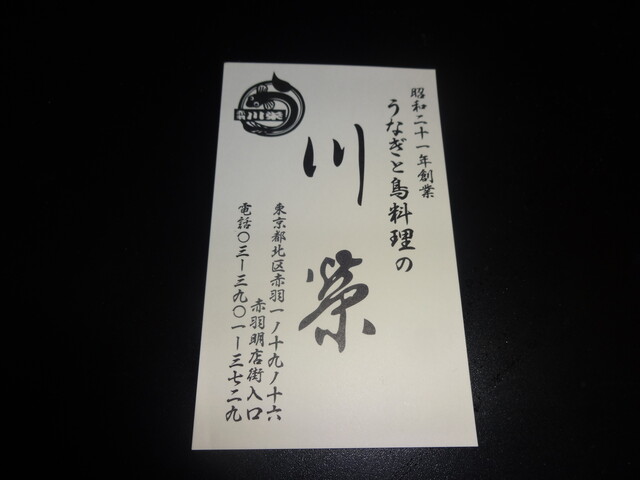 昭和二十一年創業
うなぎと鳥料理の
川榮
東京都北区赤羽一ノ十九ノ十六
赤羽明店街入口
電話〇三ー三九〇一ー三七二九
川栄